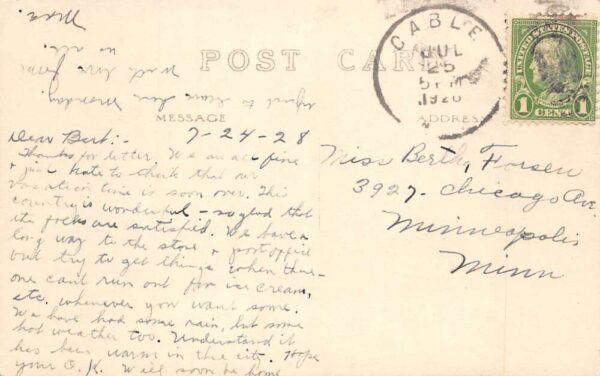 POST CARD
MESSAGE
ADDRESS
CABLE
JUL
25
5 PM
1928
UNITED STATES POSTAGE
1 1
CENT
7-24-28
Dear Bert:-
Thanks for letter. We are all fine
+ just hate to think that our
vacation time is soon over. This
country is wonderful - so glad that
the folks are satisfied. We have a
long way to the store + post office
but try to get things when there-
one can't run out for ice cream,
etc. whenever you want some.
We have had some rain, but some
hot weather too. Understand it
has been warm in the city. Hope
your O.K. Will soon be home
expect to leave here Wednesday
With love from
us all
Miss Bertha Forsen
3927- Chicago Ave.
Minneapolis
Minn